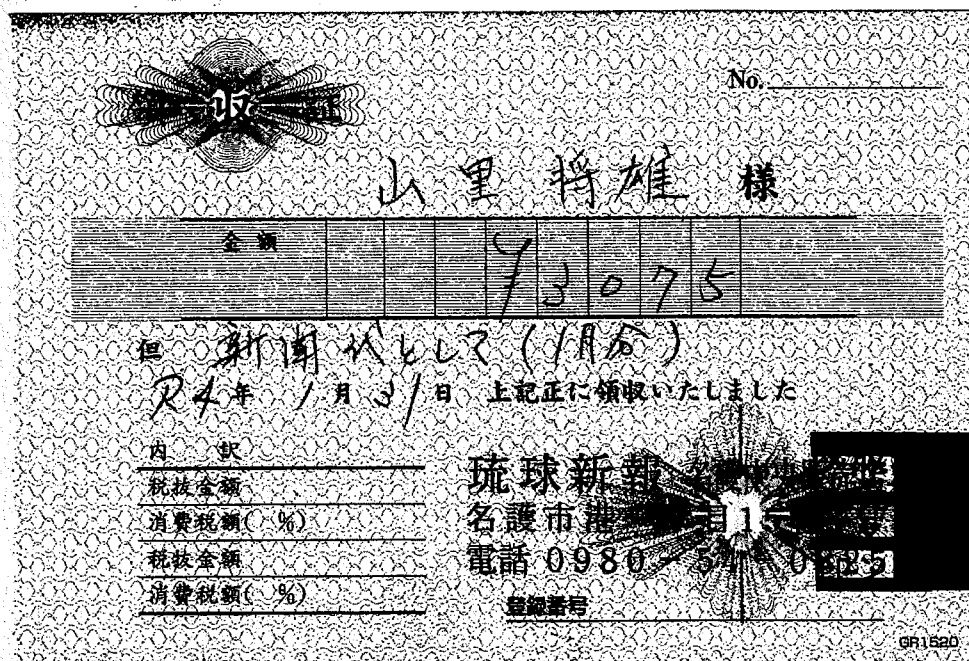 領収証
No.
山里将雄 様
金額 ¥3075
但 新聞代として(1月分)
R4年 1月 31日 上記正に領収いたしました
内 訳
税抜金額
消費税額( %)
税抜金額
消費税額( %)
琉球新報
名護市港
電話 0980-5
登録番号
GR1520